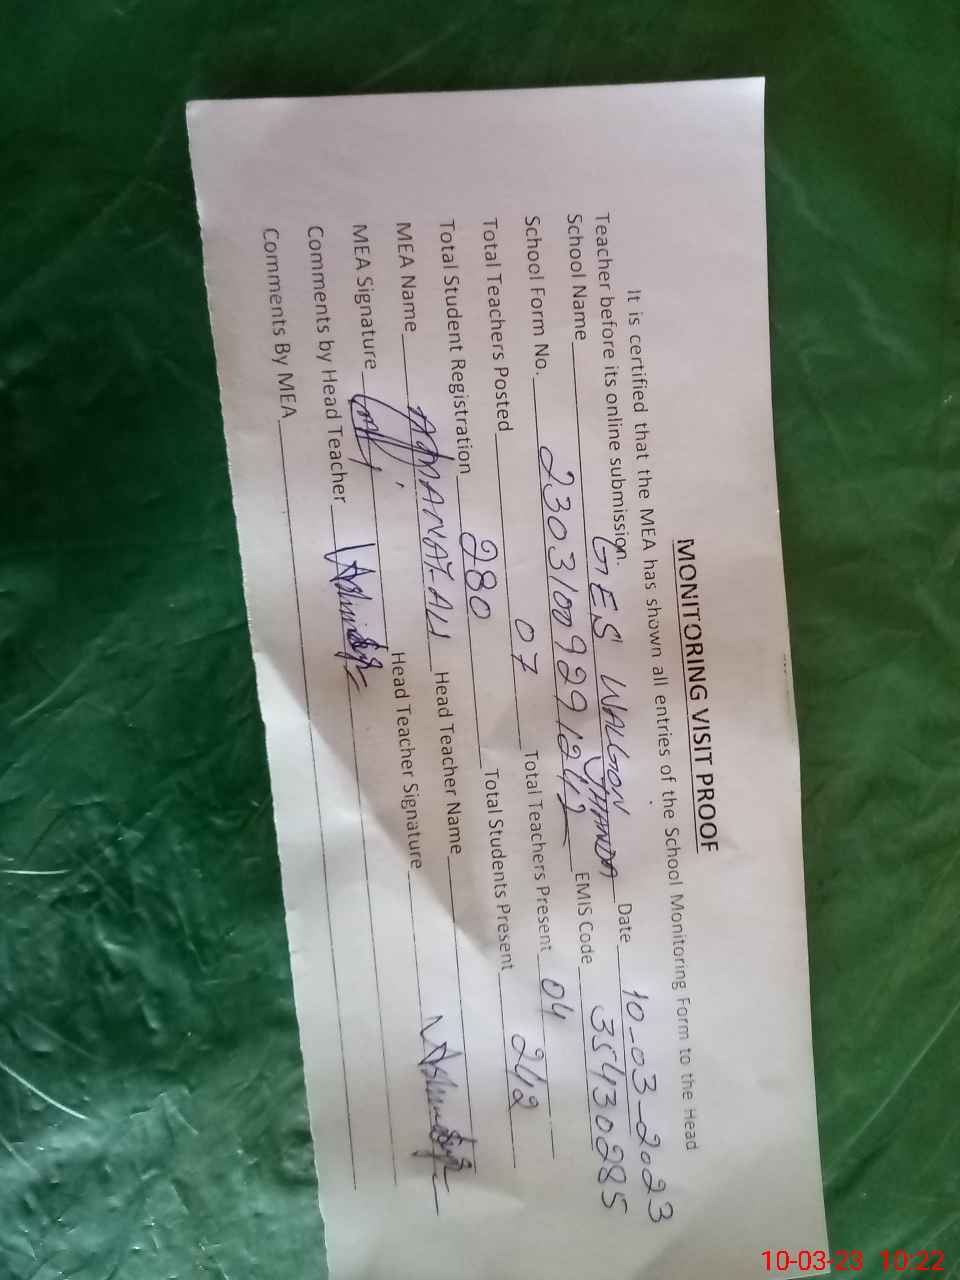 MONITORING VISIT PROOF
It is certified that the MEA has shown all entries of the School Monitoring Form to the Head
Teacher before its online submission.
School Name GES WALGON JHANDA Date 10-03-2023
School Form No. 23031009299 1242 EMIS Code 35430285
Total Teachers Posted 07 Total Teachers Present 04
Total Student Registration 280 Total Students Present 242
MEA Name AMANAT ALI Head Teacher Name
MEA Signature Head Teacher Signature
Comments by Head Teacher
Comments By MEA
10-03-23 10:22